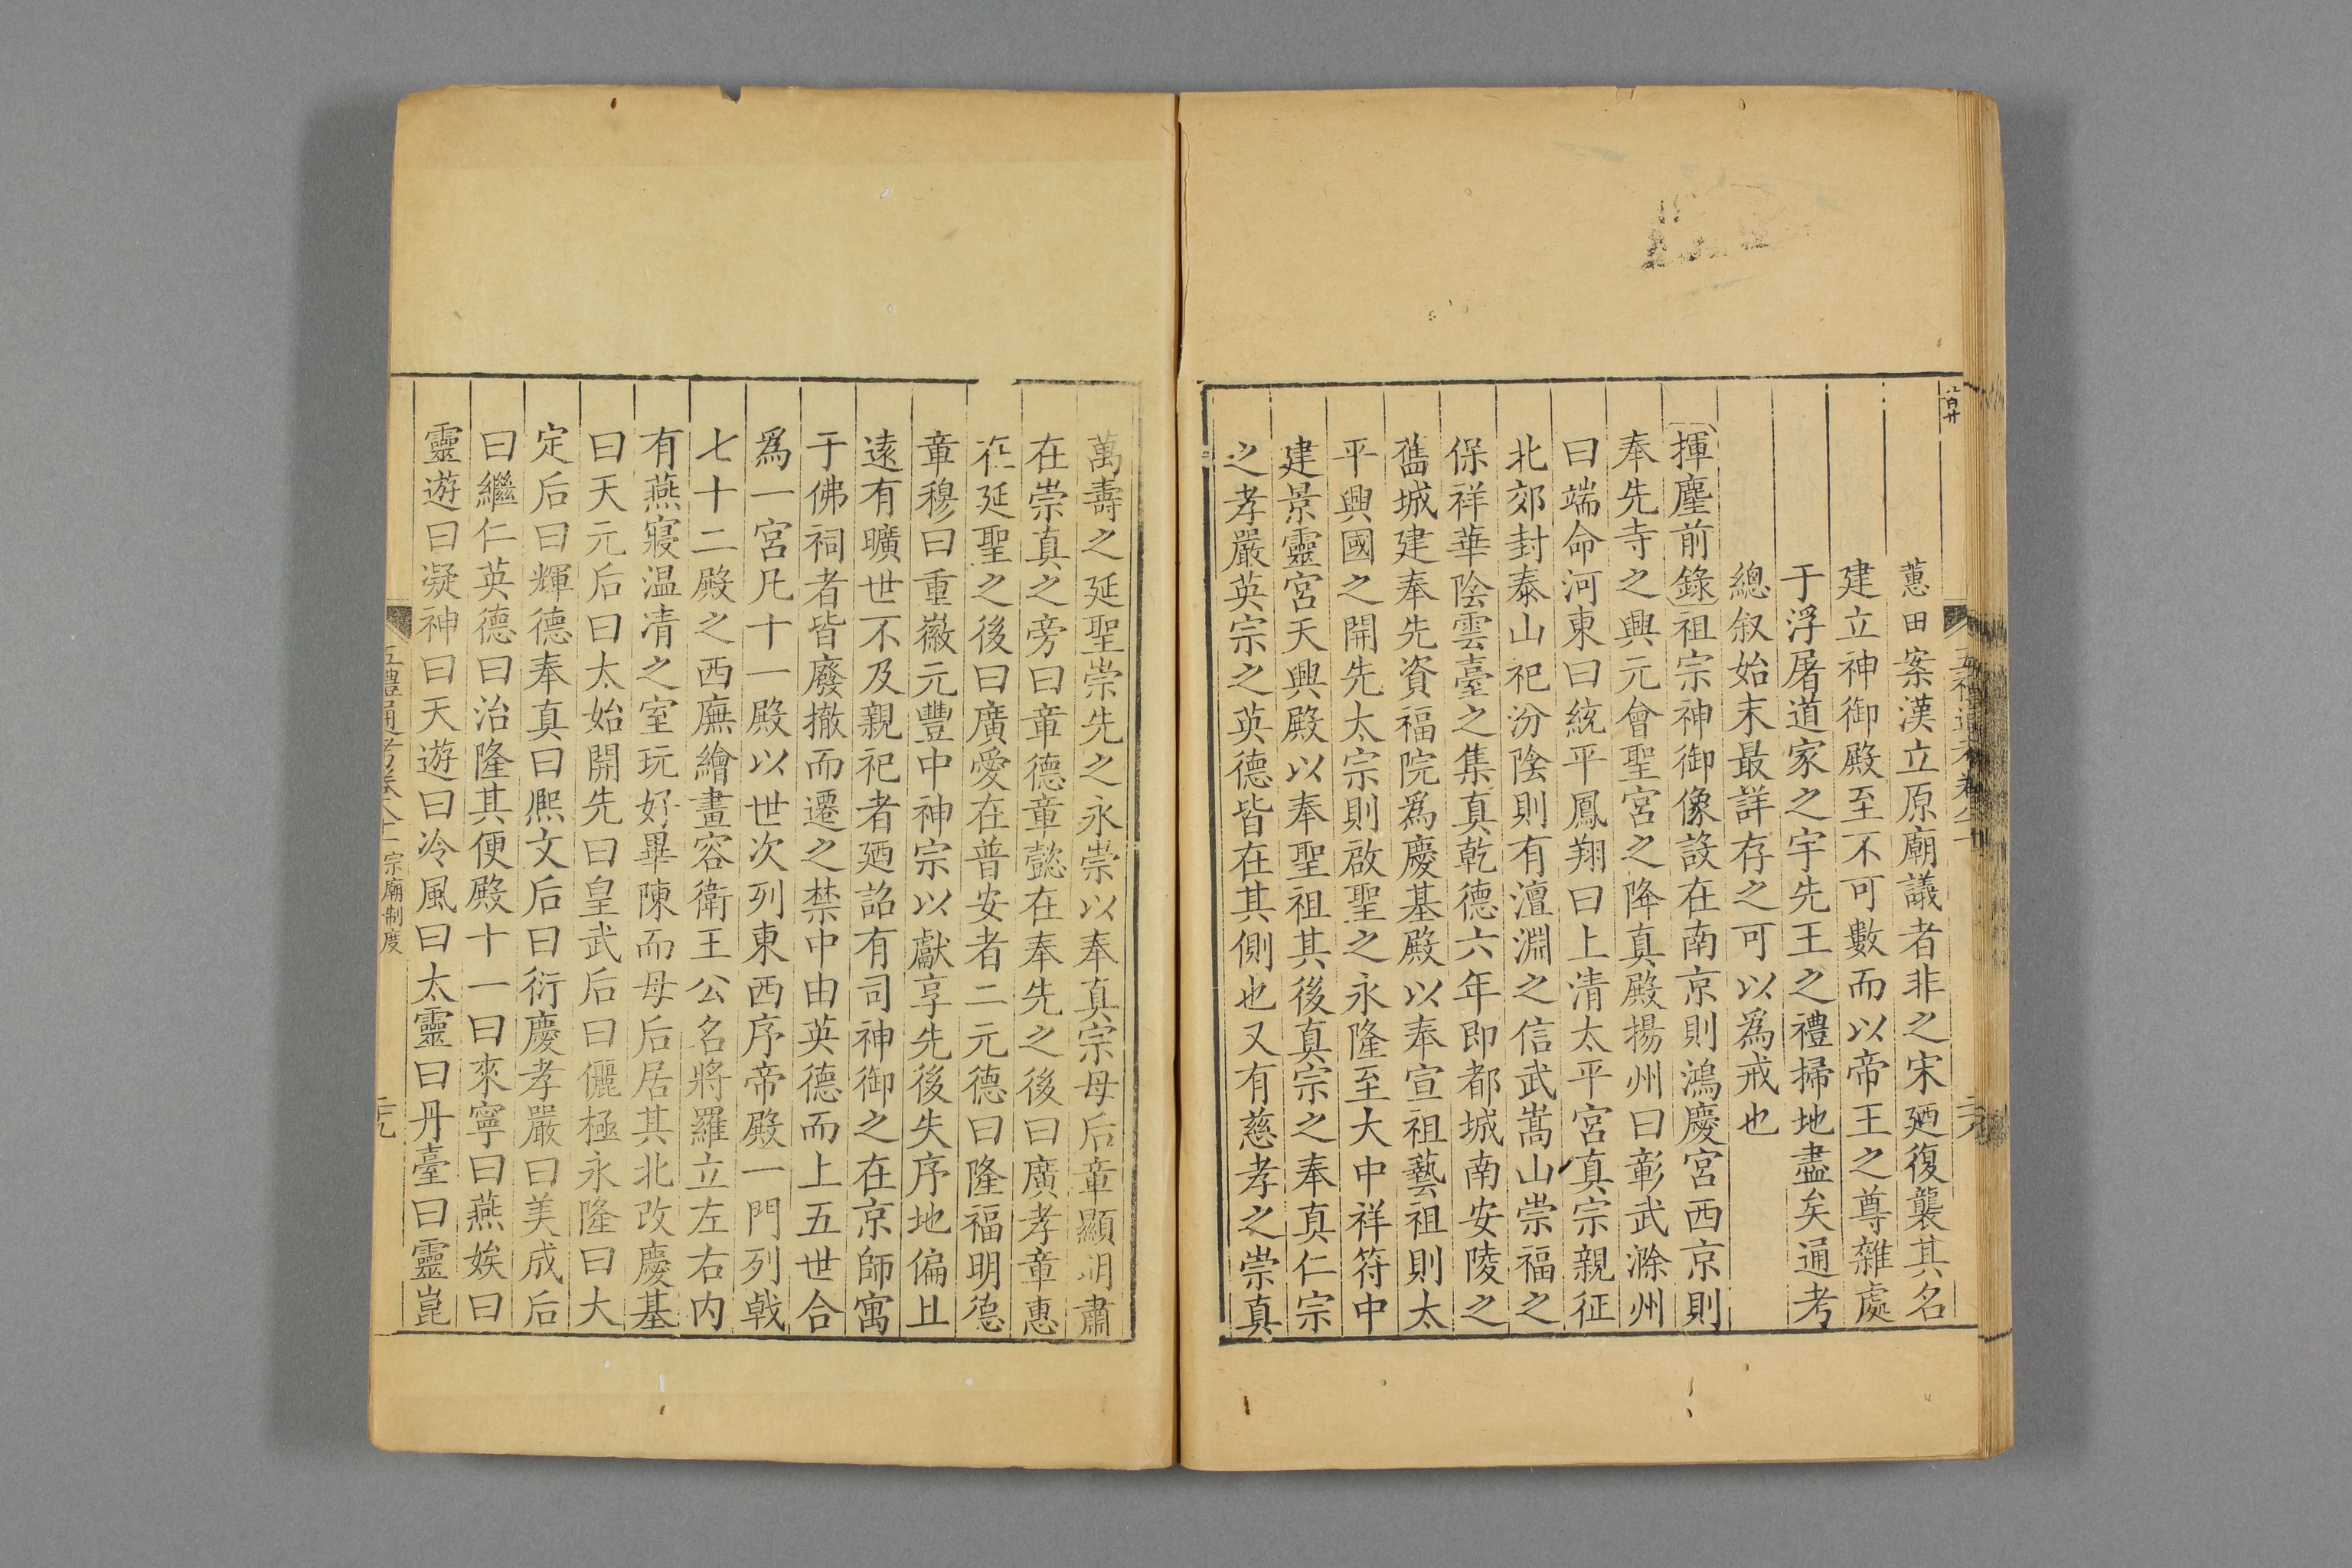 蕙田案漢立原廟議者非之宋廼復襲其名
建立神御殿至不可數而以帝王之尊雜處
于浮屠道家之宇先王之禮掃地盡矣通考
總叙始末最詳存之可以爲戒也
揮麈前錄祖宗神御像設在南京則鴻慶宮西京則
奉先寺之興元會聖宮之降真殿揚州曰彰武滁州
曰端命河東曰統平鳳翔曰上清太平宮真宗親征
北郊封泰山祀汾陰則有澶淵之信武嵩山崇福之
保祥華陰雲臺之集真乾德六年即都城南安陵之
舊城建奉先資福院爲慶基殿以奉宣祖藝祖則太
平興國之開先太宗則啟聖之永隆至大中祥符中
建景靈宮天興殿以奉聖祖其後真宗之奉真仁宗
之孝嚴英宗之英德皆在其側也又有慈孝之崇真
萬壽之延聖崇先之永崇以奉真宗母后章顯明肅
在崇真之旁曰章德章懿在奉先之後曰廣孝章惠
在延聖之後曰廣愛在普安者二元德曰隆福明德
章穆曰重徽元豐中神宗以獻享先後失序地偏且
遠有曠世不及親祀者廼詔有司神御之在京師寓
于佛祠者皆廢撤而遷之禁中由英德而上五世合
爲一宮凡十一殿以世次列東西序帝殿一門列戟
七十二殿之西廡繪畫容衛王公名將羅立左右内
有燕寢温清之室玩好畢陳而母后居其北改慶基
曰天元后曰太始開先曰皇武后曰儷極永隆曰大
定后曰輝德奉真曰熙文后曰衍慶孝嚴曰美成后
曰繼仁英德曰治隆其便殿十一曰來寧曰燕娭曰
靈遊曰凝神曰天遊曰泠風曰太靈曰丹臺曰靈崑
五禮通考卷八十一 宗廟制度